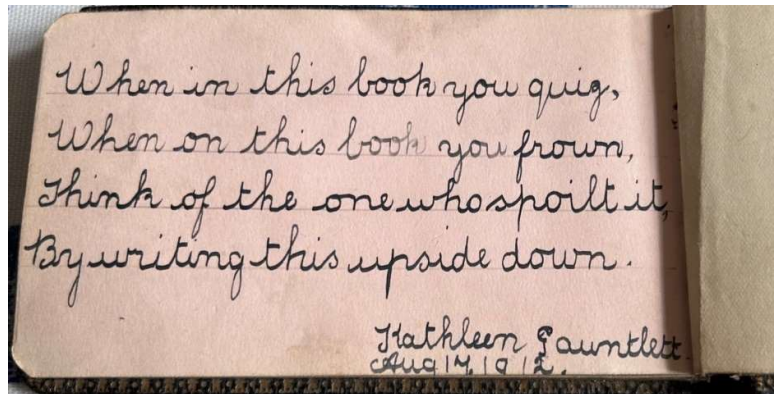 When in this book you quiz,
When on this book you frown,
Think of the one who spoilt it,
By writing this upside down.
Kathleen Gauntlett.
Aug 17, 1912.